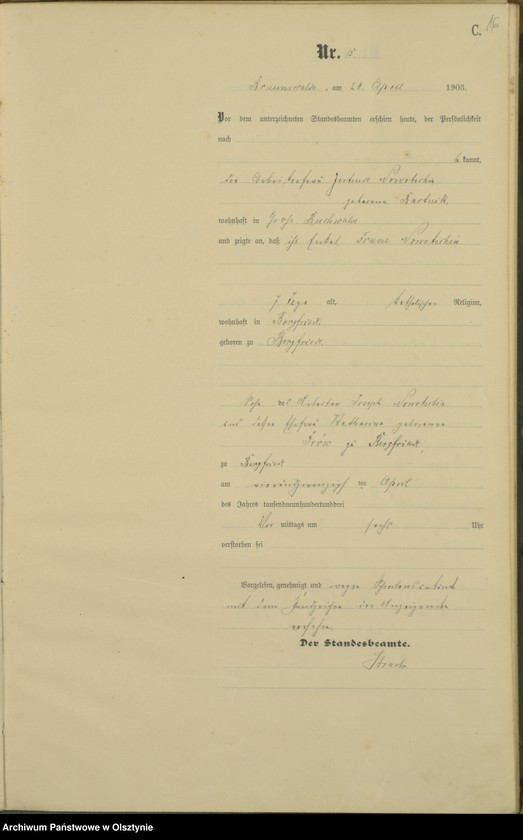 C. 16
Nr. 15
Braunswalde, am 24. April 1903.
Vor dem unterzeichneten Standesbeamten erschien heute, der Persönlichkeit
nach
kannt,
die Arbeiterfrau Nowotschin
geborene
wohnhaft in Groß Buchwalde
und zeigte an, daß ihr Enkel Franz Nowotschin
7 Tage alt, katholischer Religion,
wohnhaft in Bergfriede
geboren zu Bergfriede
Sohn des Arbeiters Joseph Nowotschin
und dessen Ehefrau Katharina geborene
zu Bergfriede,
zu Bergfriede
am vierundzwanzigsten April
des Jahres tausendneunhundertunddrei
Vor mittags um sechs Uhr
verstorben sei
Vorgelesen, genehmigt und wegen
mit dem Handzeichen der Anzeigenden
versehen
Der Standesbeamte.
Archiwum Państwowe w Olsztynie